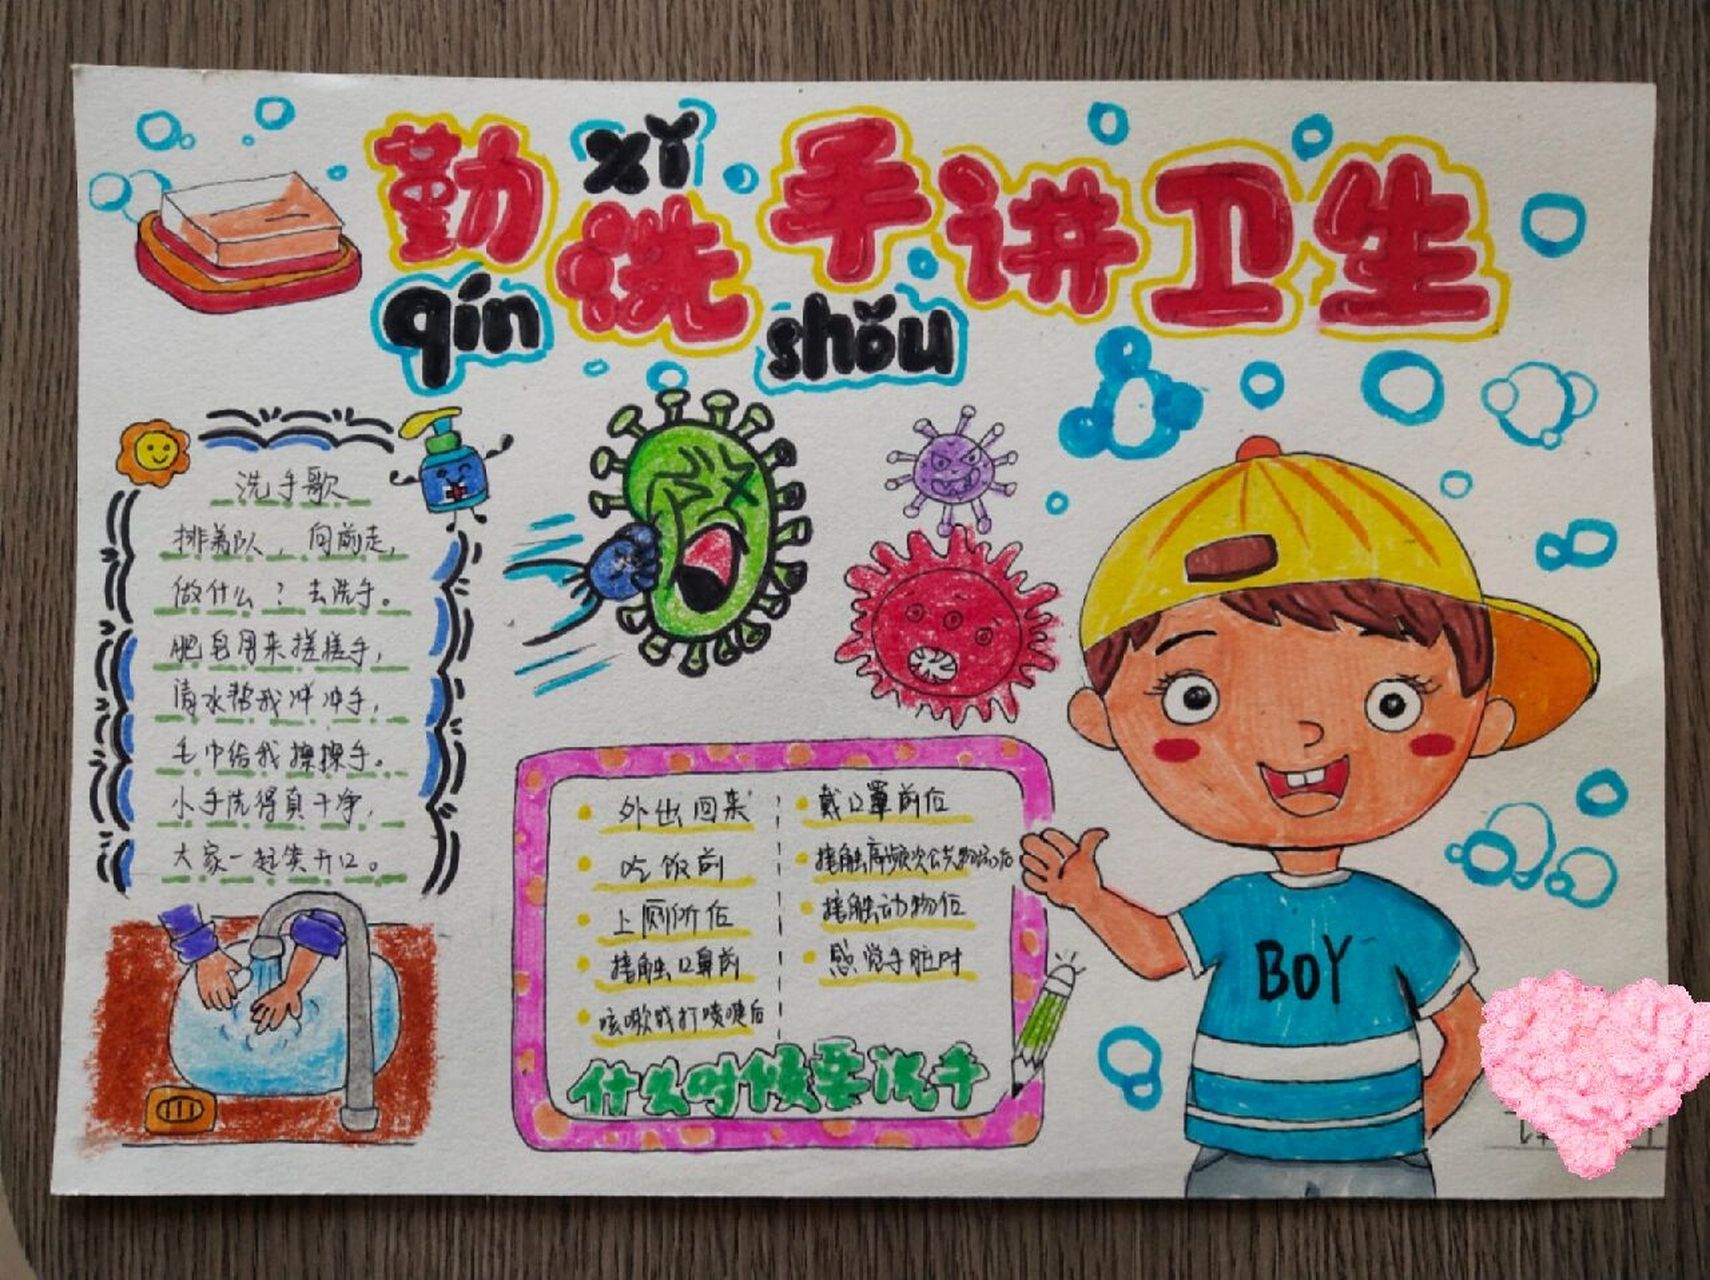 勤洗手讲卫生
qín xǐ shǒu
洗手歌
排着队，向前走，
做什么？去洗手。
肥皂用来搓搓手，
清水帮我冲冲手，
毛巾给我擦擦手。
小手洗得真干净，
大家一起笑开口。
外出回来
吃饭前
上厕所后
接触口鼻前
咳嗽或打喷嚏后
戴口罩前后
接触高频次公共物品后
接触动物后
感觉手脏时
什么时候要洗手
BOY